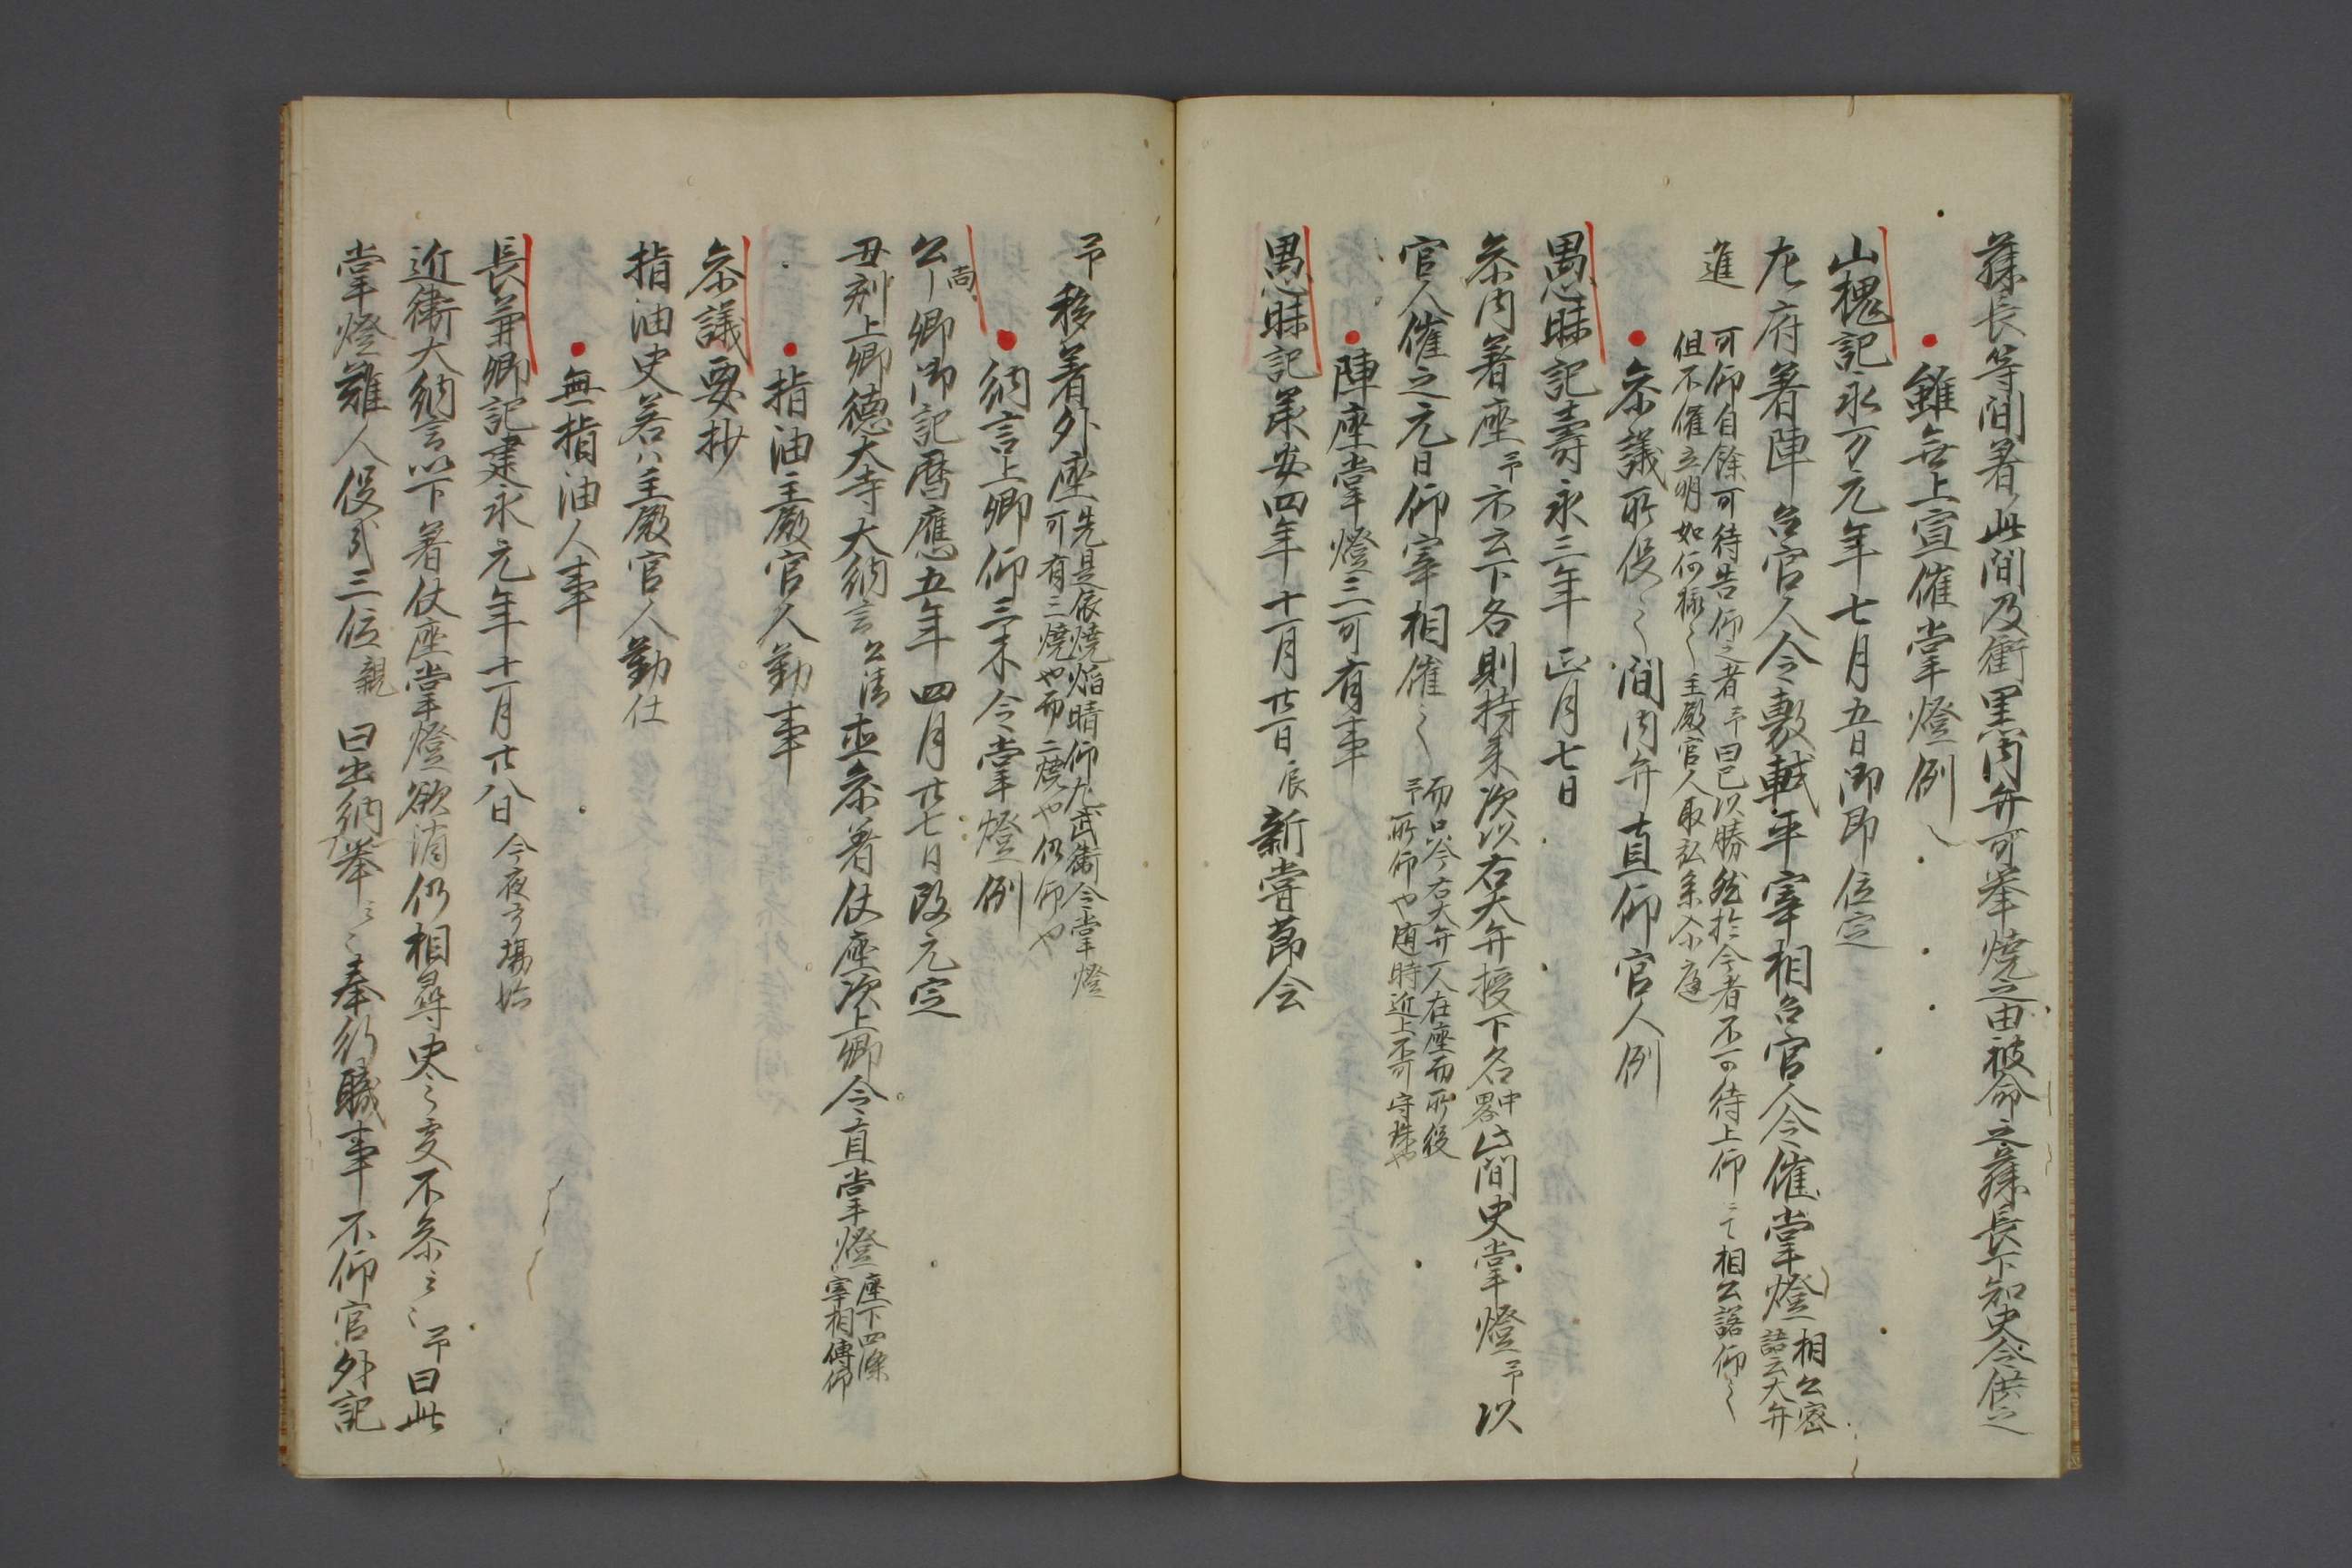 蘓長等間著此間及衝黒内弁可挙燒之由被命之蘓長下知史令供之
雖無上宣催掌燈例
山槐記永万元年七月五日御即位定
左府著陣召官人令敷軾平宰相召官人令催掌燈
相公密
語云大弁
可仰自餘可待告仰之者予曰已以勝然於今者不可待上仰云々相公諾仰之
但不催立明如何様々主殿官人取弘参入小庭
進
参議所役之間内弁直仰官人例
愚昧記壽永三年正月七日
参内著座予示云下名則持来次以右大弁授下名
中
畧
此間史掌燈予以
官人催之元日仰宰相催之
而只今右大弁一人在座而所役
予所仰也随時近上不可守株也
陣座掌燈三可有事
愚昧記承安四年十一月廿一日辰新嘗節会
予移著外座
先是依燒焔晴仰左武衛令掌燈
可有三燒也而二燒也仍仰也
納言上卿仰三木令掌燈例
公尚卿御記暦應五年四月廿七日改元定
丑刻上卿徳大寺大納言公清直参著仗座次上卿令直掌燈
座下四條
宰相傳仰
指油主殿官人勤事
参議要抄
指油史若八主殿官人勤仕
無指油人事
長兼卿記建永元年十一月廿八日今夜弓場始
近衛大納言以下著仗座掌燈欲消仍相尋史之處不参云々予曰此
掌燈雖人役弐三位親曰出納挙云々奉行職事不仰官外記